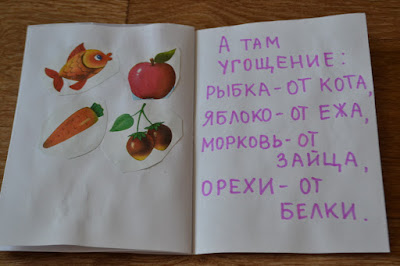 А ТАМ
УГОЩЕНИЕ:
РЫБКА-ОТ КОТА,
ЯБЛОКО-ОТ ЕЖА,
МОРКОВЬ-ОТ
ЗАЙЦА,
ОРЕХИ-ОТ
БЕЛКИ.